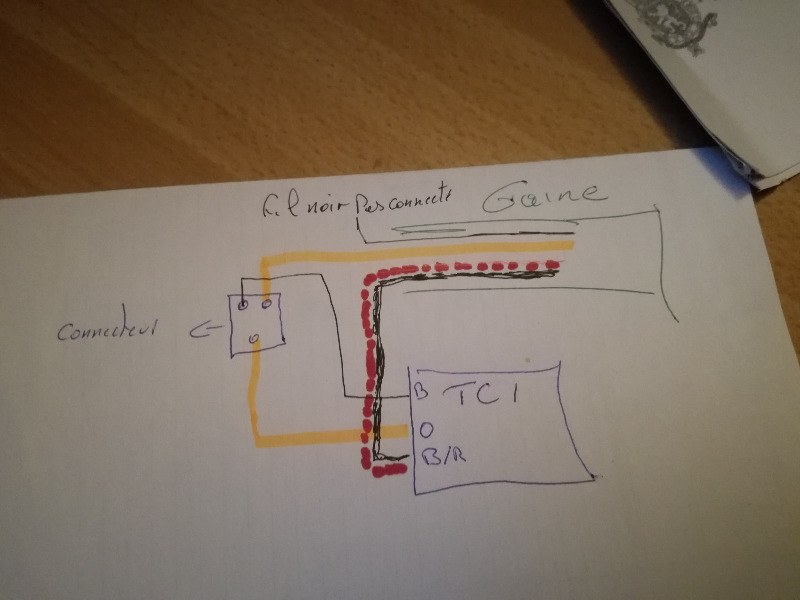 Fil noir Pas connecté Gaine
Connecteur
B TC1
O
B/R